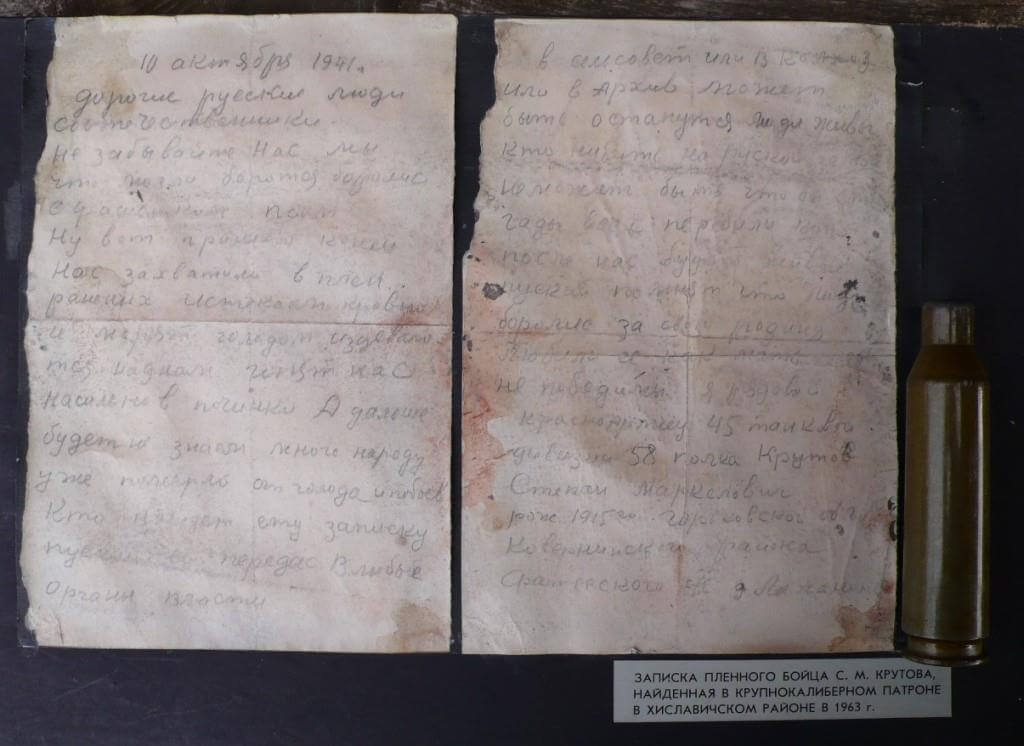 10 актября 1941г.
дорогие руские люди
соотечественники.
не забывайте нас мы
что могли боротся боролис
Ну вот пришел конец
Нас захватили в плен
раненых истекаем кровью
и морят голодом издеваю
тся над нами гонют нас
в починки А дальше
будет не знаем много народу
уже померло от голода и побоев
Кто найдет ету записку
пускай передас в любые
органы власти
в сельсовет или в колхоз
или в Архив может
быть останутся люди живы
кто нибуть на руской
не может быть чтобы
гады всех перебили
после нас будут живы
пускай помнят что люди
боролис за свою родину
любили ее как мать
не победимы я рядовой
красноармеец 45 танковой
дивизии 58 полка Крутов
Степан Маркелович
рож 1915го горьковской обл
Ковернинского района
с/с д
ЗАПИСКА ПЛЕННОГО БОЙЦА С. М. КРУТОВА,
НАЙДЕННАЯ В КРУПНОКАЛИБЕРНОМ ПАТРОНЕ
В ХИСЛАВИЧСКОМ РАЙОНЕ В 1963 г.